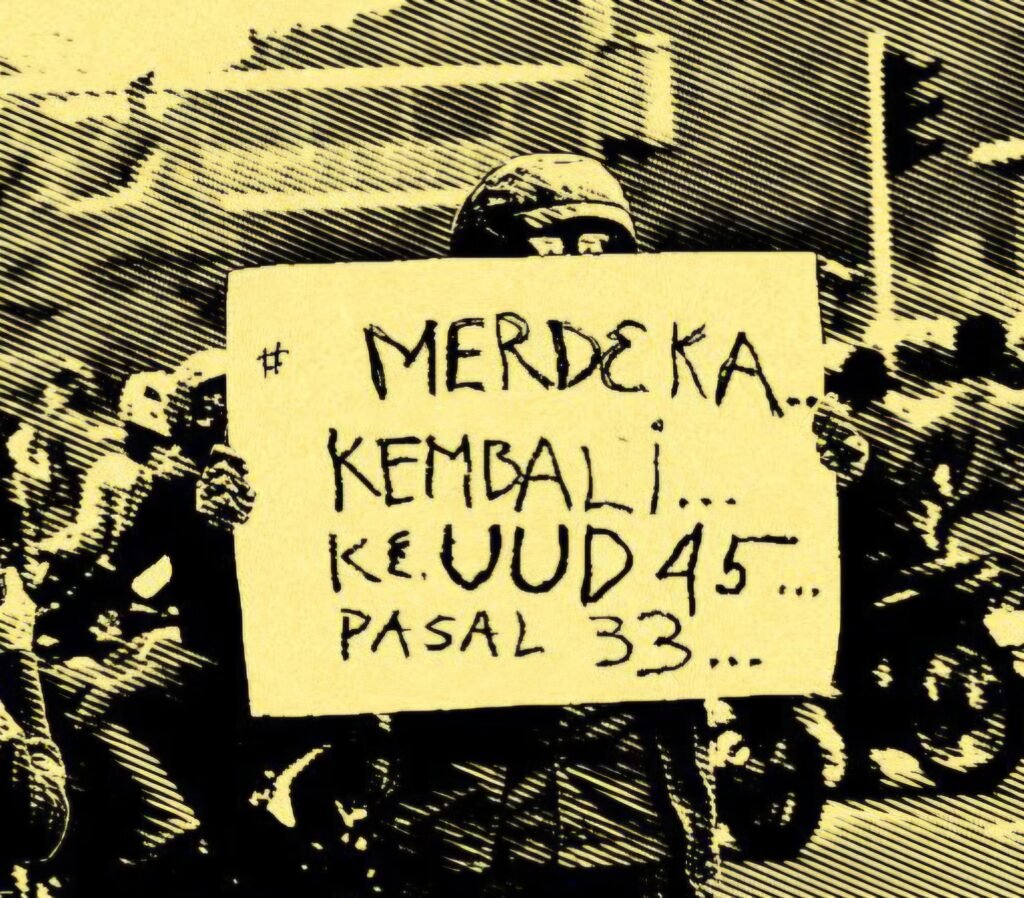 # MERDEKA..
KEMBALi...
KE. UUD 45...
PASAL 33...